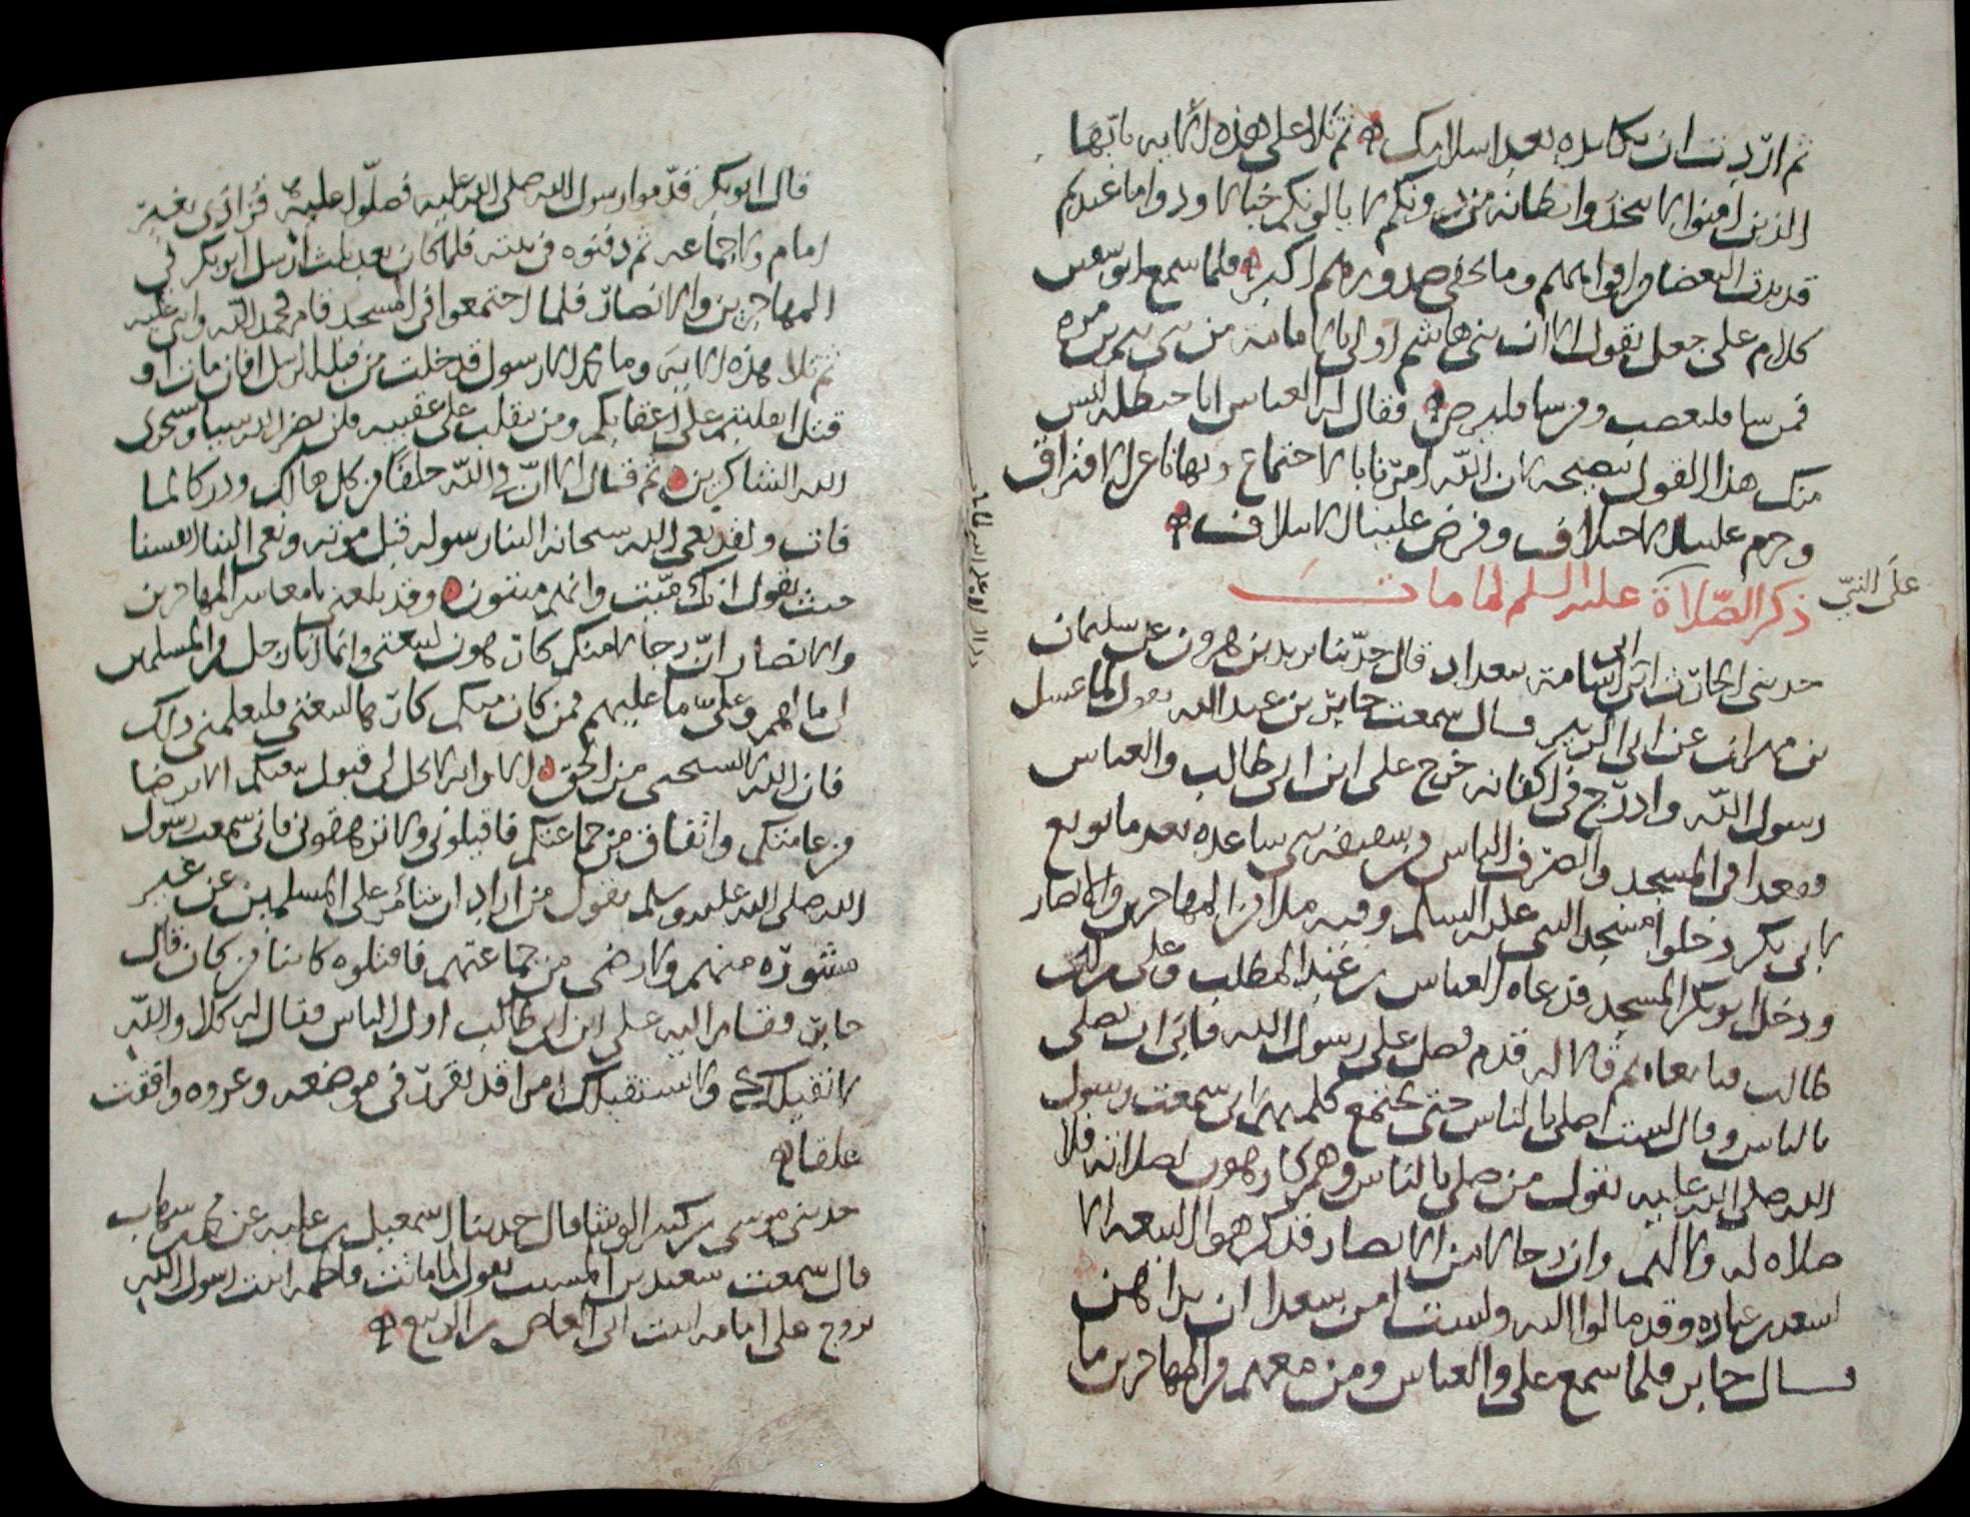 ثم اردت ان تكايده بعد اسلامك ثم تلا على هذه الاية يايها
الذين امنوا لا تتخذوا بطانة من دونكم لا يالونكم خبالا ودوا ما عنتم
قد بدت البغضا من افواههم وما تخفي صدورهم اكبر فلما سمع ابو سفين
كلام على جعل يقول الا ان بنى هاشم اولى بالامامة من بنى تيم بن مره
فمن سا فليغضب ومن سا فليرض فقال له العباس ابا حنظله ليس
منك هذا القول بنصيحه لان الله امرنا بالاجتماع ونهانا عن الافتراق
وحرم علينا الاختلاف وفرض علينا الايتلاف
ذكر الصلاة عليه السلم لما مات
على النبي
حدثنى الحارث ابن ابى اسامة ببغداد قال حدثنا يزيد بن هرون عن سليمان
بن مهران عن ابى الزبير قال سمعت جابر بن عبد الله يقول لما غسل
رسول الله وادرج في اكفانه خرج على ابن ابى طالب والعباس
فقعدا في المسجد وانصرف الناس من سقيفه بنى ساعده بعد ما بويع
لابى بكر دخلوا مسجد النبى عليه السلم وفيه ملا من المهاجرين والانصار
ودخل ابو بكر المسجد فدعاه العباس بن عبد المطلب وعلى بن ابى
طالب فقالا له قدم فصل على رسول الله فابى ان يصلى
بالناس وقال لست اصلى بالناس حتى تجتمع كلمتهم انى سمعت رسول
الله صلى الله عليه يقول من صلى بالناس وهم كارهون لصلاته فلا
صلاة له ولا لهم وان رجالا من الانصار قد كرهوا البيعه الا
اسعد بن عباده وقد مالوا اليه ولست امن سعدا ان بدا لهن
قال جابر فلما سمع على والعباس ومن معهم من المهاجرين ما
قال ابو بكر قدموا رسول الله صلى الله عليه فصلوا عليه فرادى بغير
امام ولا جماعه ثم دفنوه في بيته فلما كان بعد ثلث ارسل ابو بكر في
المهاجرين والانصار فلما اجتمعوا في المسجد قام فحمد الله واثنى عليه
ثم تلا هذه الاية وما محمد الا رسول قد خلت من قبله الرسل افان مات او
قتل انقلبتم على اعقابكم ومن ينقلب على عقبيه فلن يضر الله شيا وسيجزى
الله الشاكرين ثم قال الا ان في الله خلفا من كل هالك ودركا لما
فات ولقد نعى الله سبحانه الينا رسوله قبل موته ونعى الينا انفسنا
حيث يقول انك ميت وانهم ميتون وقد بلغنى يا معاشر المهاجرين
والانصار ان رجالا منكم كارهون لبيعتى وانما انا رجل من المسلمين
لى ما لهم وعلى ما عليهم فمن كان منكم كارها لبيعتى فليعلمنى ذلك
فان الله لا يستحيى من الحق الا وانه لا يحل لى قبول بيعتكم الا برضا
من عامتكم واتفاق من جماعتكم فاقيلونى ولا تبغضونى فانى سمعت رسول
الله صلى الله عليه وسلم يقول من اراد ان يتامر على المسلمين عن غير
مشورة منهم ولا رضى من جماعتهم فاقتلوه كاينا من كان قال
جابر فقام اليه على ابن ابى طالب اول الناس فقال له كلا والله
لا نقيلك ولا نستقيلك امرا قد تقرر في موضعه وعروه وافقت
علقا
حدثنى موسى بن كثير الوشا قال حدثنا اسمعيل بن عليه عن محمد بن شهاب
قال سمعت سعيد بن المسيب يقول لما ماتت فاطمه ابنت رسول الله
تزوج على امامه ابنت ابى العاص بن الربيع